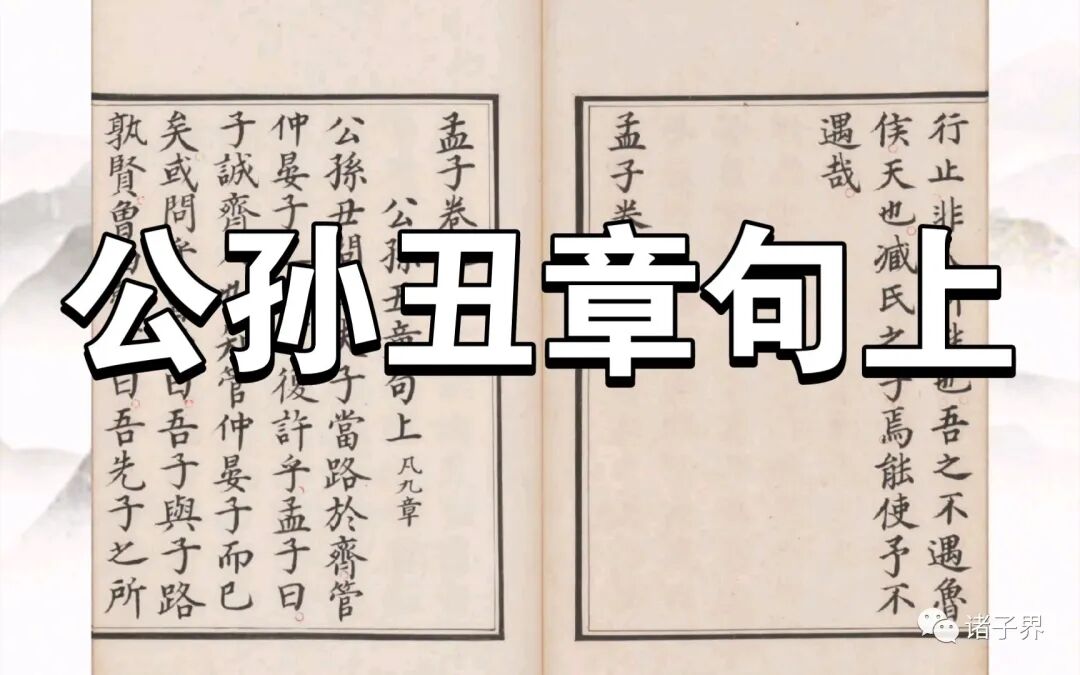 公孙丑章句上
行止非能也吾之不遇魯
侯天也臧氏之子焉能使予不
遇哉
孟子卷
孟子卷
公孫丑章句上 凡九章
公孫丑問夫子當路於齊管
仲晏子復許乎孟子曰
子誠齊也知管仲晏子而已
矣或問乎曰吾子與子路
孰賢曰吾先子之所
诸子界